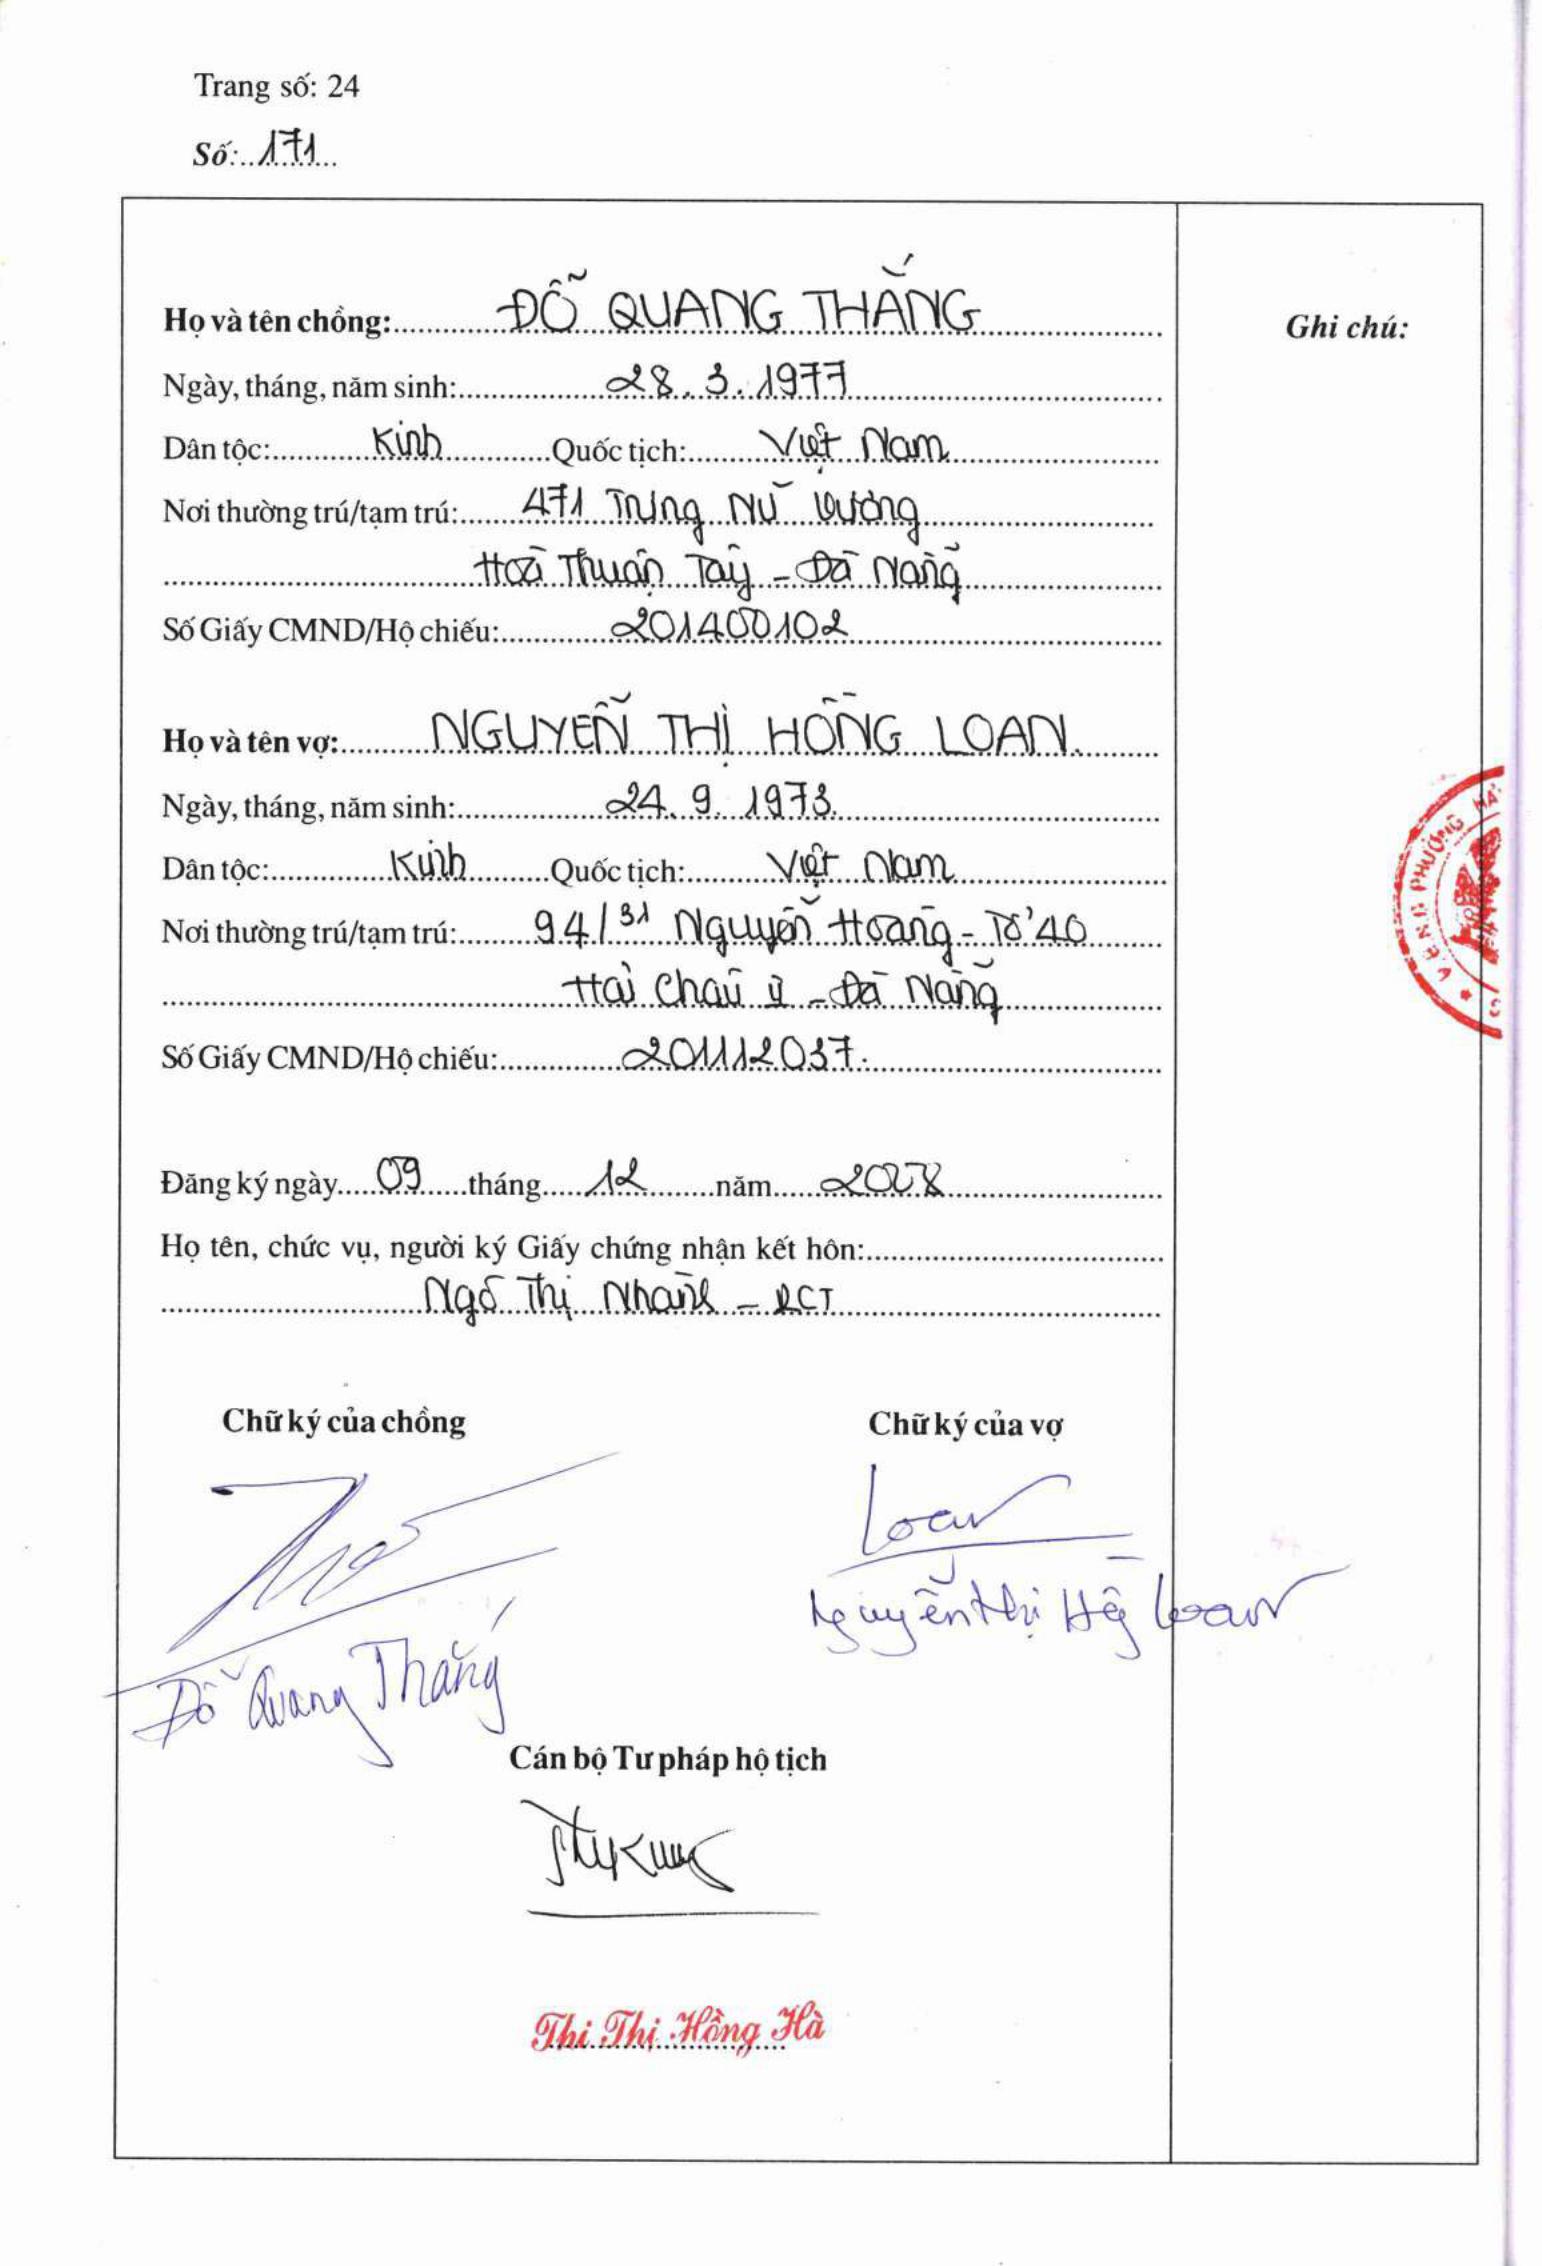 Trang số: 24
Số: 171
Họ và tên chồng: ĐỖ QUANG THẮNG
Ghi chú:
Ngày, tháng, năm sinh: 28.3.1977
Dân tộc: Kinh Quốc tịch: Việt Nam
Nơi thường trú/tạm trú: 471 Trưng Nữ Vương
Hoà Thuận Tây - Đà Nẵng
Số Giấy CMND/Hộ chiếu: 201400102
Họ và tên vợ: NGUYỄN THỊ HỒNG LOAN.
Ngày, tháng, năm sinh: 24.9.1973.
Dân tộc: Kinh Quốc tịch: Việt Nam
Nơi thường trú/tạm trú: 94/31 Nguyễn Hoàng - Tổ 40
Hải Châu II - Đà Nẵng
Số Giấy CMND/Hộ chiếu: 201112037.
Đăng ký ngày 09 tháng 12 năm
Họ tên, chức vụ, người ký Giấy chứng nhận kết hôn:
Ngô Thị Nhành - PCT
Chữ ký của chồng
Chữ ký của vợ
Loan
Nguyễn Thị Hồng Loan
Đỗ Quang Thắng
Cán bộ Tư pháp hộ tịch
Thi Thị Hồng Hà